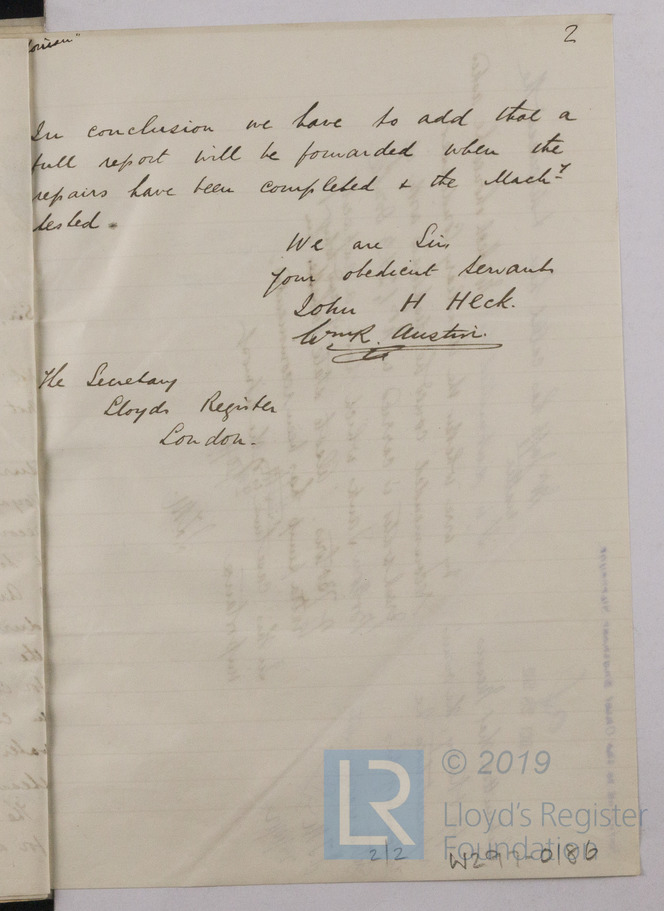 2
In conclusion we have to add that a
full report will be forwarded when the
repairs have been completed & the Machy
tested.
We are Sir
Your obedient servants
John H Heck.
WmR. Austin.
The Secretary
Lloyds Register
London.
LR
© 2019
Lloyd's Register
Foundation
2/2
W299-0186